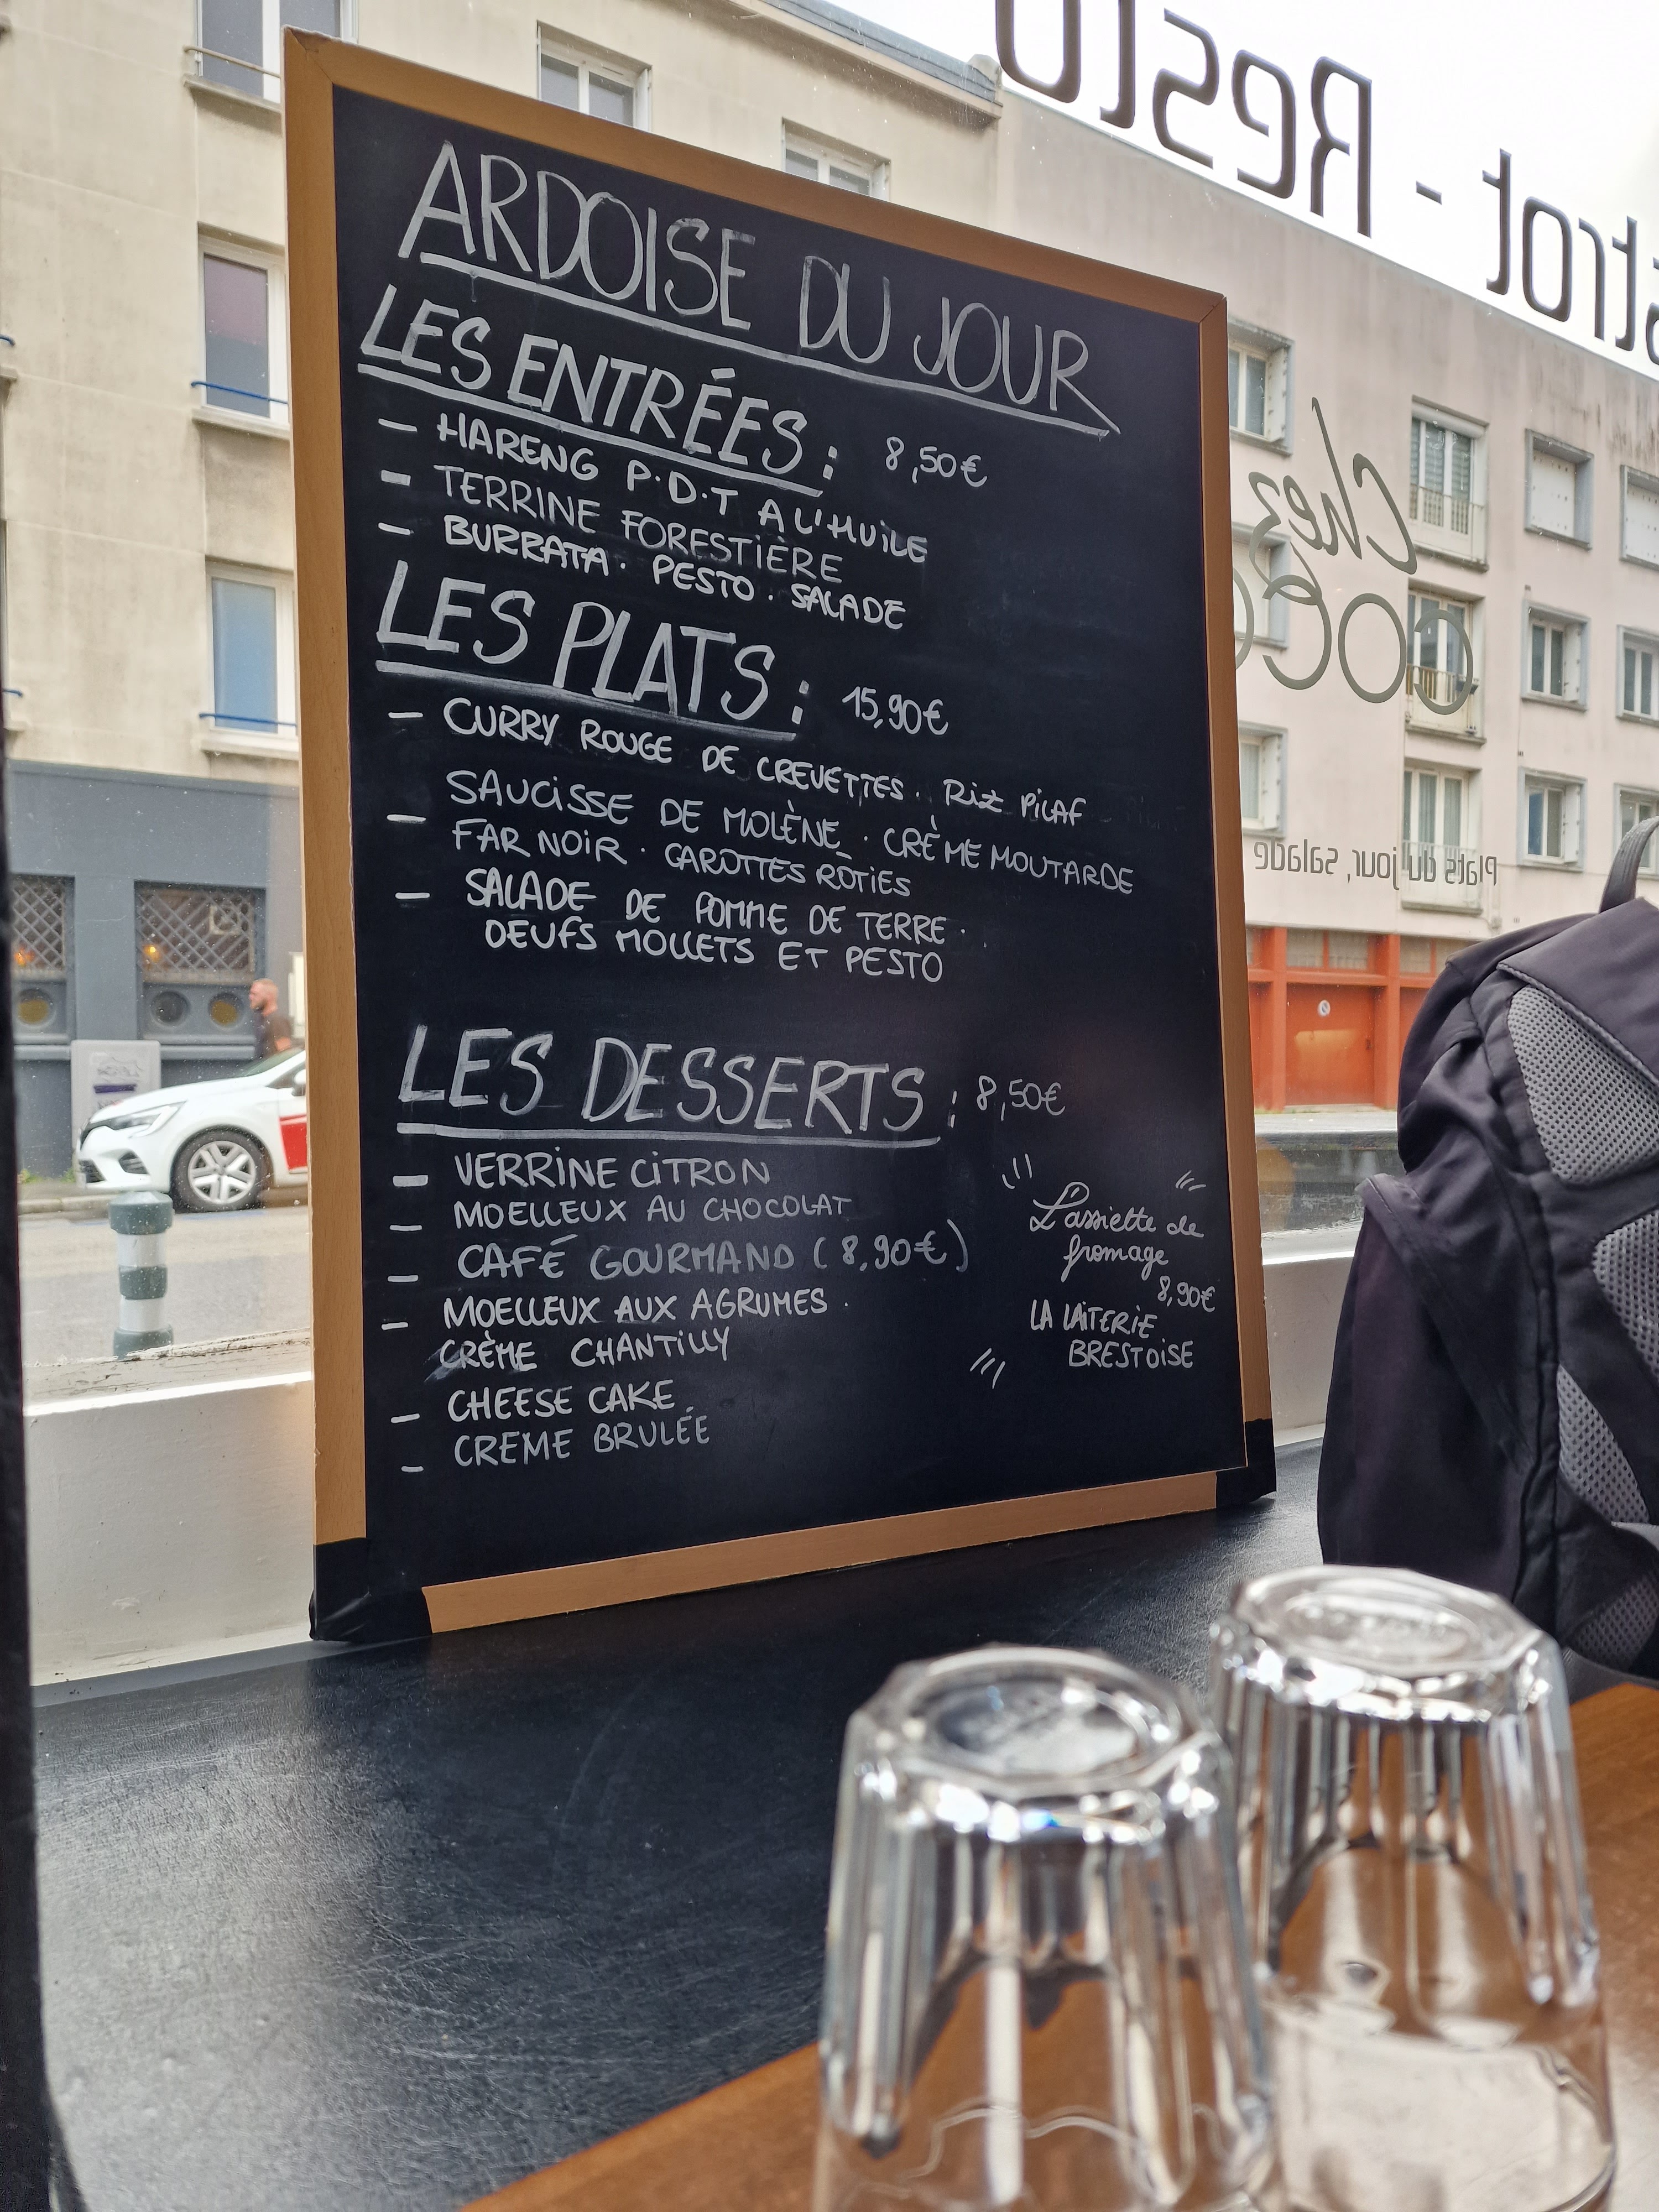 ARDOISE DU JOUR
LES ENTRÉES : 8,50€
– HARENG P.D.T A L'HUILE
– TERRINE FORESTIÈRE
– BURRATA . PESTO . SALADE
LES PLATS : 15,90€
– CURRY ROUGE DE CREVETTES . RIZ PILAF
– SAUCISSE DE MOLÈNE . CRÈME MOUTARDE
FAR NOIR . CAROTTES RÔTIES
– SALADE DE POMME DE TERRE .
OEUFS MOLLETS ET PESTO
LES DESSERTS : 8,50€
– VERRINE CITRON
– MOELLEUX AU CHOCOLAT
– CAFÉ GOURMAND (8,90€)
– MOELLEUX AUX AGRUMES .
CRÈME CHANTILLY
– CHEESE CAKE
– CREME BRULÉE
L'assiette de
fromage
8,90€
LA LAITERIE
BRESTOISE
strot - Resto
Chez
COCO
Plats du jour, salade